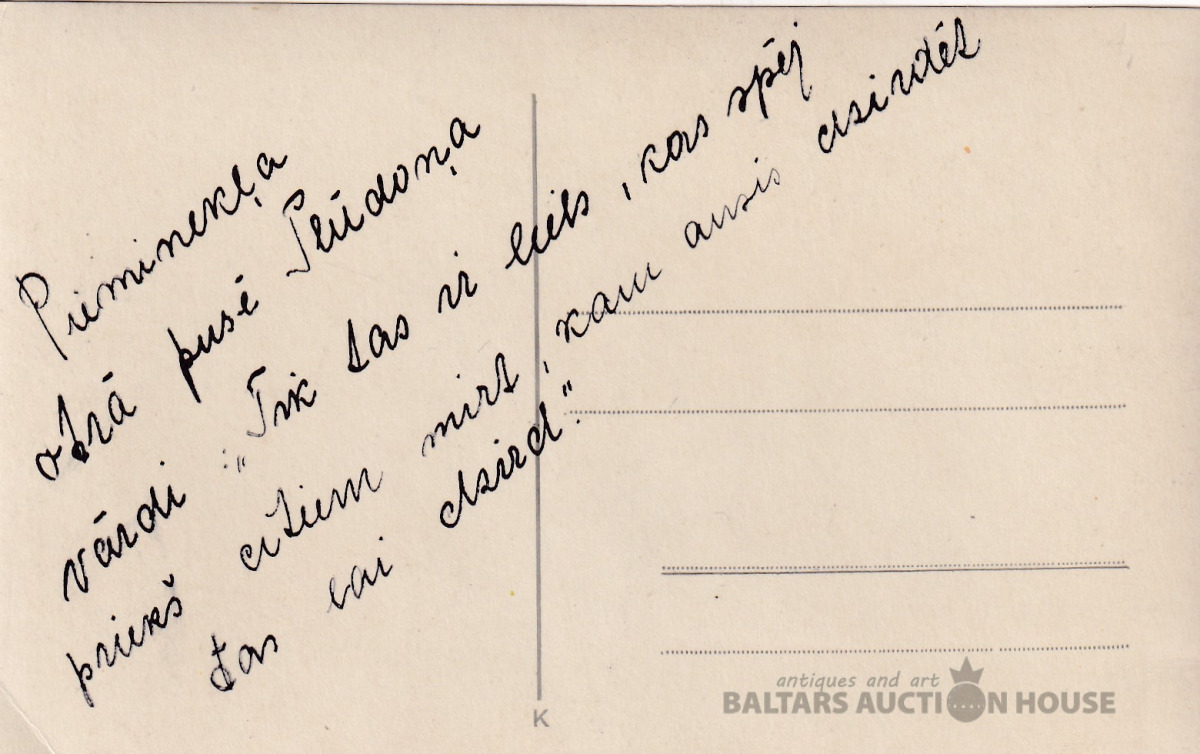 Pieminekļa
otrā pusē Plūdoņa
vārdi: „Tik tas ir liels, kas spēj
priekš citiem mirt, kam ausis dzirdēt
tas lai dzird."
K
antiques and art
BALTARS AUCTION HOUSE